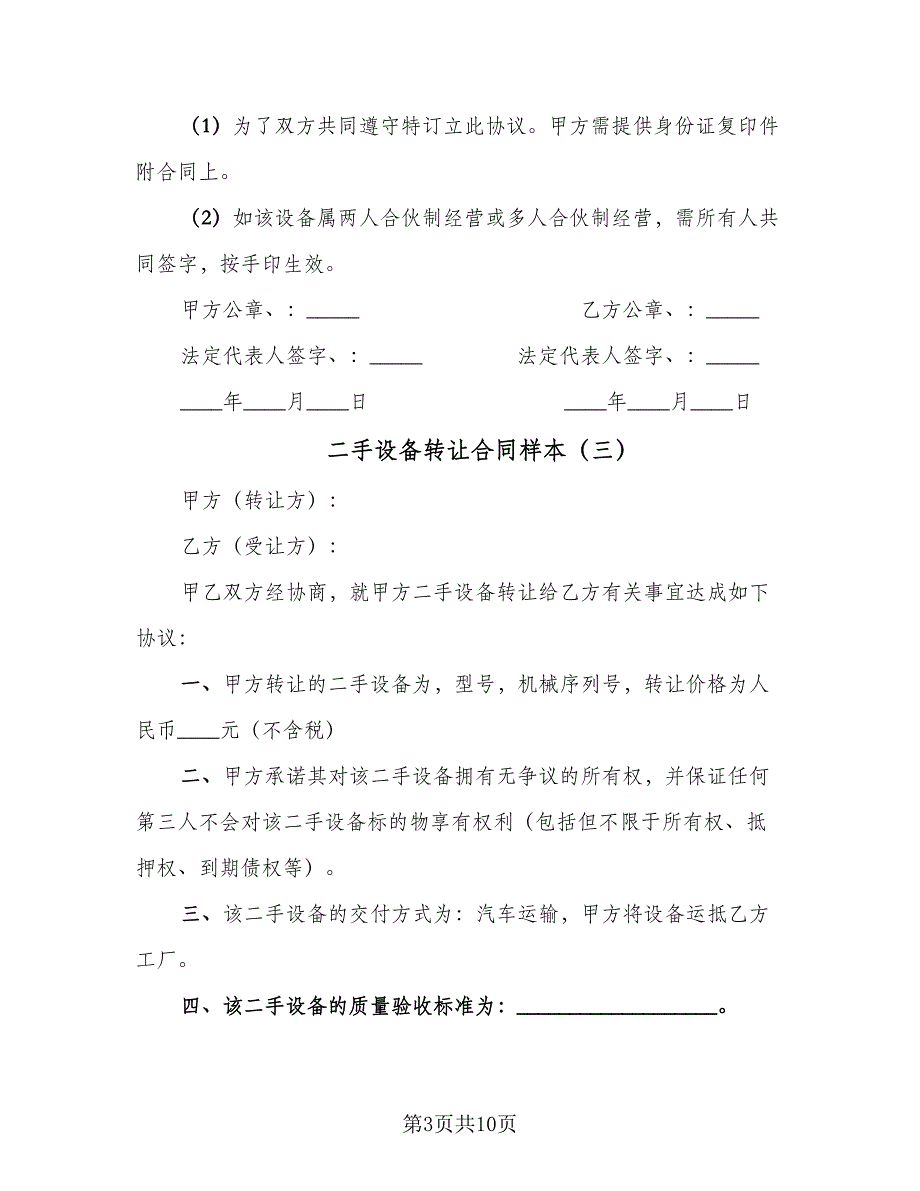 （1）为了双方共同遵守特订立此协议。甲方需提供身份证复印件
附合同上。
（2）如该设备属两人合伙制经营或多人合伙制经营，需所有人共
同签字，按手印生效。
甲方公章、：_____ 乙方公章、：_____
法定代表人签字、：_____ 法定代表人签字、：_____
____年____月____日 ____年____月____日
二手设备转让合同样本（三）
甲方（转让方）：
乙方（受让方）：
甲乙双方经协商，就甲方二手设备转让给乙方有关事宜达成如下
协议：
一、甲方转让的二手设备为，型号，机械序列号，转让价格为人
民币____元（不含税）
二、甲方承诺其对该二手设备拥有无争议的所有权，并保证任何
第三人不会对该二手设备标的物享有权利（包括但不限于所有权、抵
押权、到期债权等）。
三、该二手设备的交付方式为：汽车运输，甲方将设备运抵乙方
工厂。
四、该二手设备的质量验收标准为：___________________。
第3页共10页